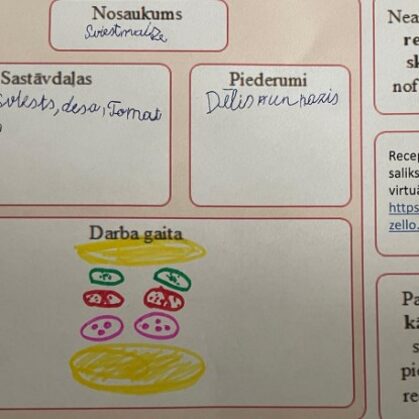 Nosaukums
Sviestmaize
Sastāvdaļas
sviests, desa, Tomat
Piederumi
Dēlis un nazis
Darba gaita
Nea
re
sk
nof
Recep
saliks
virtuā
https
zello.
Pa
kā
s
pie
re